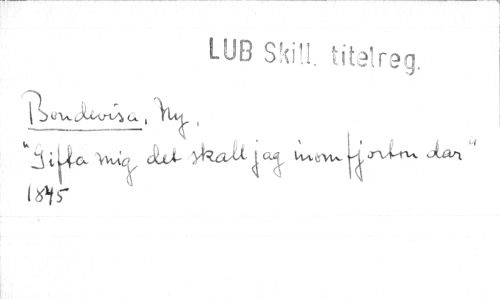 LUB Skill. titelreg.
Bondevisa, Ny.
"Gifta mig det skall jag inom fjorton dar"
1845